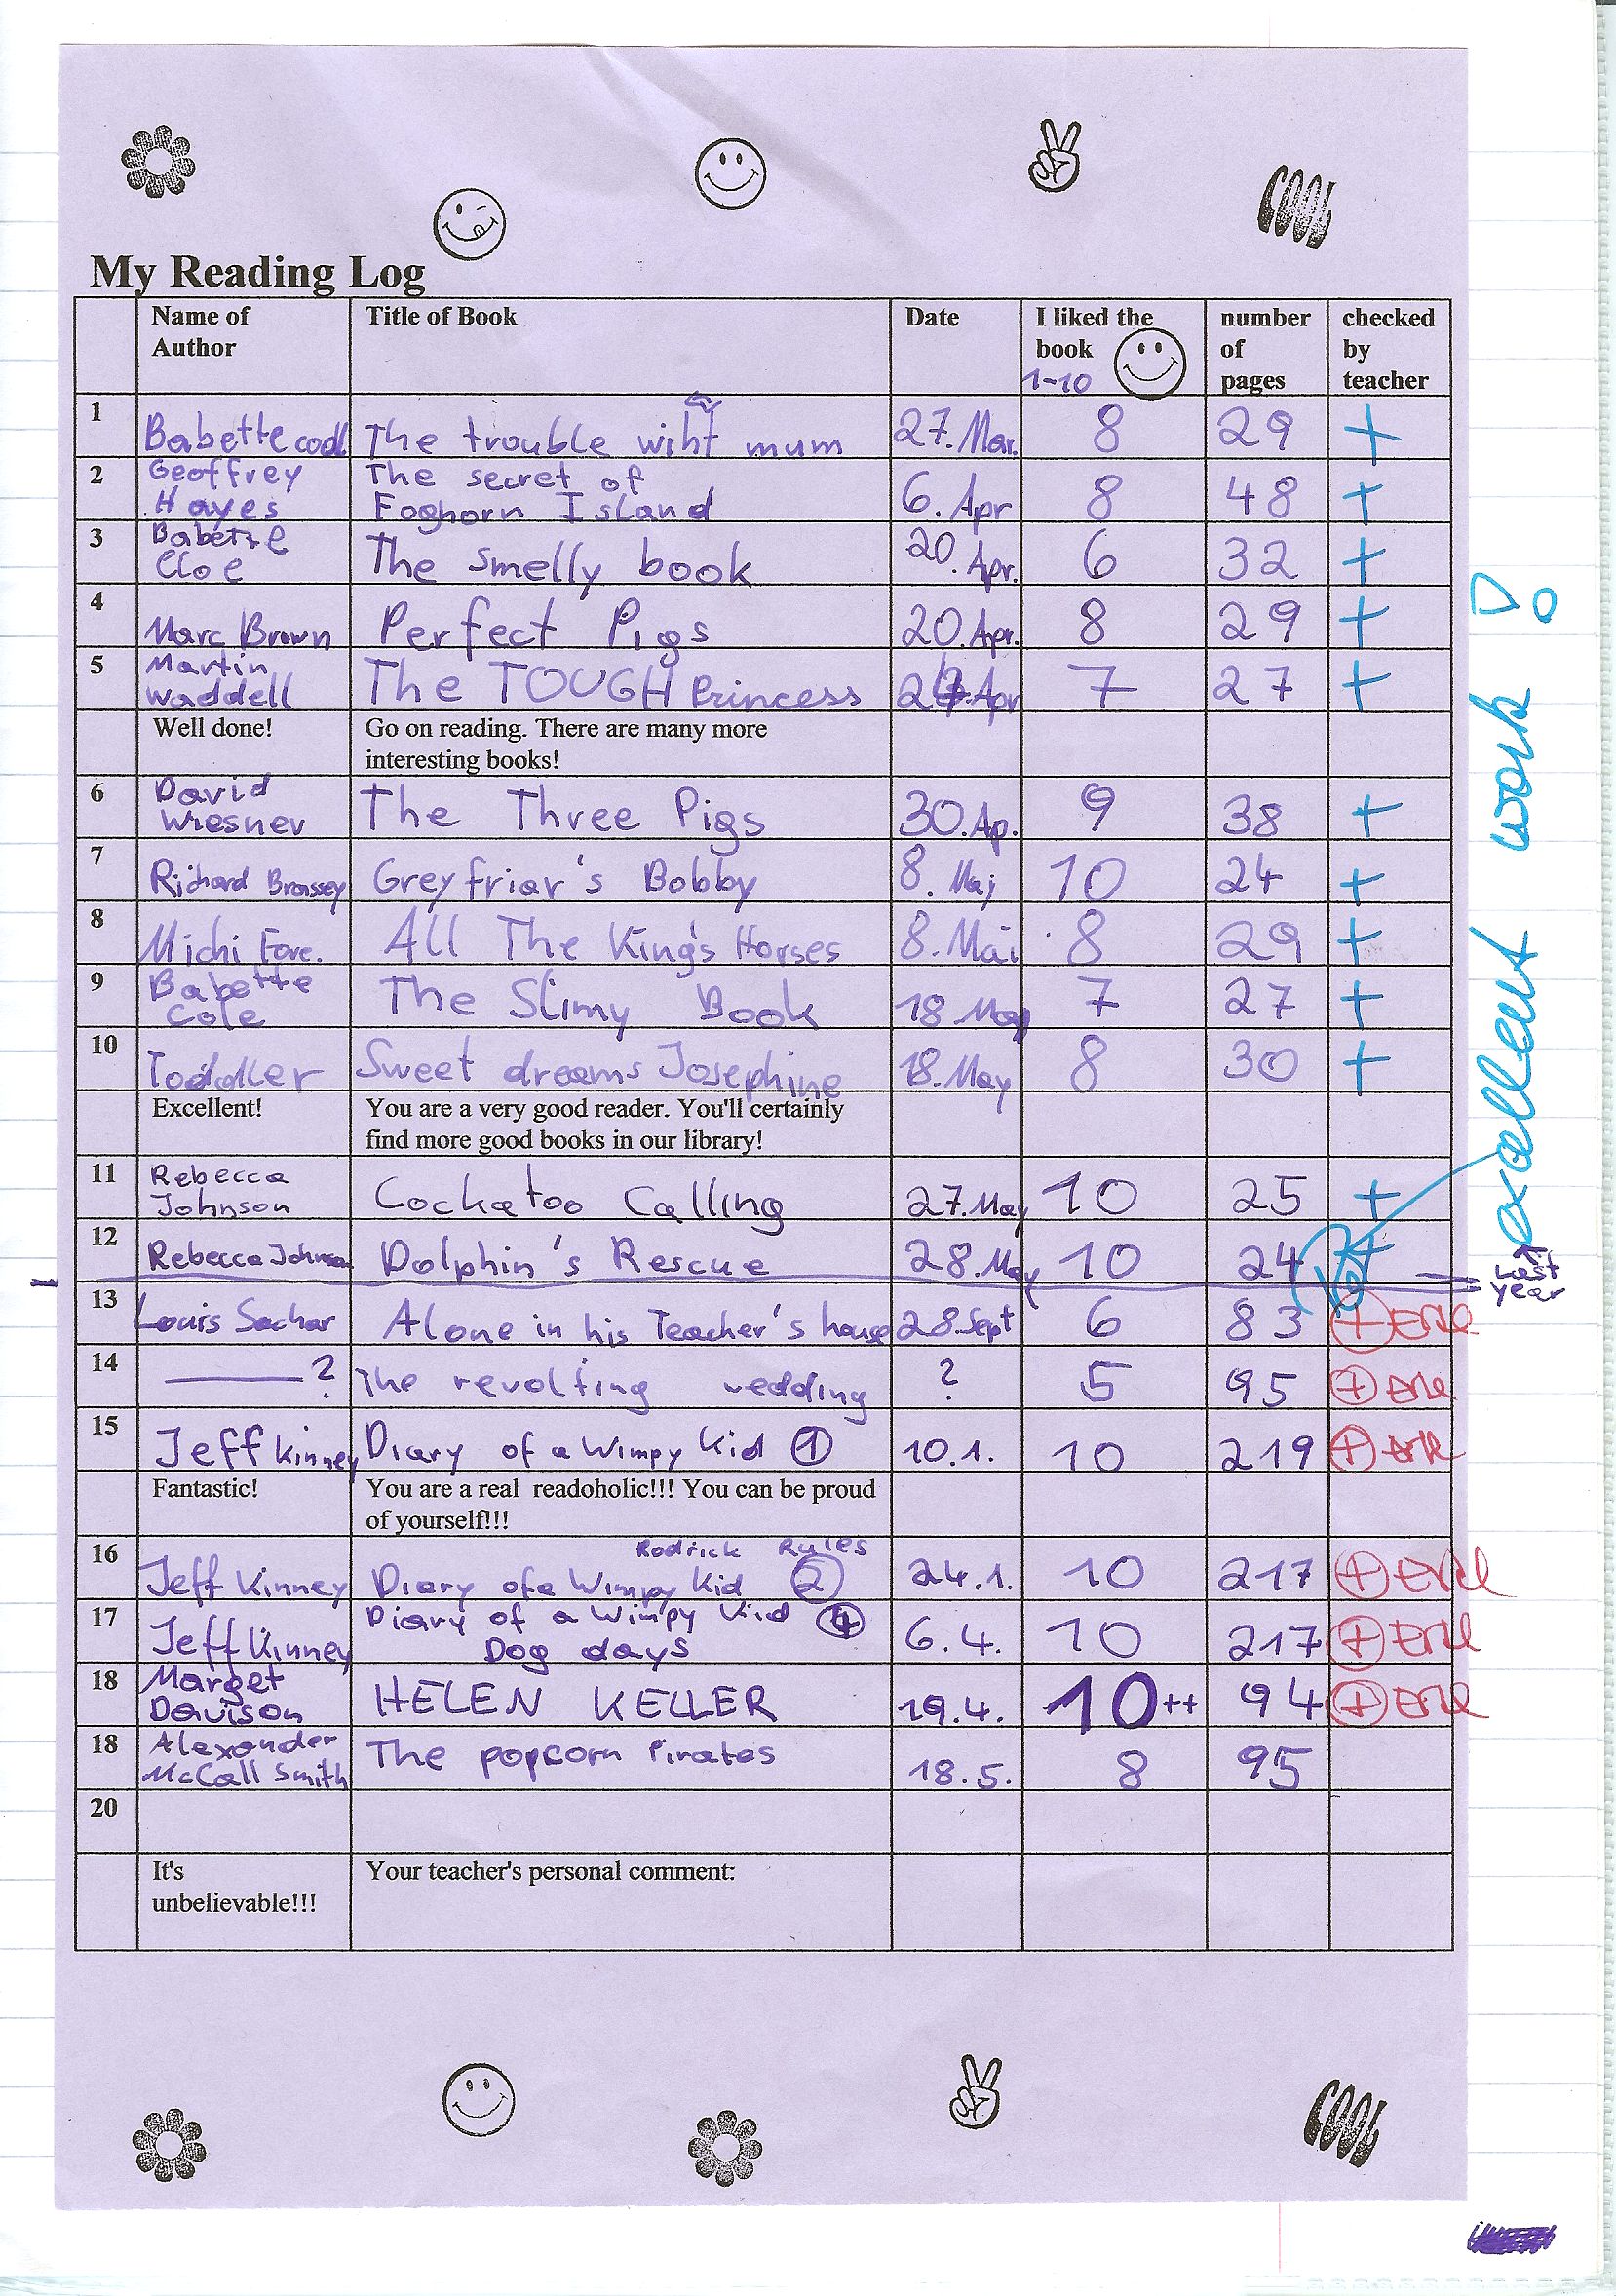 COOL
My Reading Log
Name of Author Title of Book Date I liked the book 1-10 number of pages checked by teacher
1 Babette The trouble wiht mum 27. Mar. 8 29 +
2 Geoffrey Hayes The secret of Foghorn Island 6. Apr 8 48 +
3 Babette Cloe The smelly book 20. Apr. 6 32 +
4 Marc Brown Perfect Pigs 20. Apr. 8 29 +
5 Martin Waddell The TOUGH Princess Apr 7 27 +
Well done! Go on reading. There are many more interesting books!
6 David Wiesner The Three Pigs 30. Ap. 9 38 +
7 Richard Brassey Greyfriar's Bobby 8. Mai 10 24 +
8 Michi Fore. All The King's Horses 8. Mai 8 29 +
9 Babette Cole The Slimy Book 18. May 7 27 +
10 Toddler Sweet dreams Josephine 18. May 8 30 +
Excellent! You are a very good reader. You'll certainly find more good books in our library!
11 Rebecca Johnson Cockatoo Calling 27. May 10 25 +
12 Rebecca Johnson Dolphin's Rescue 28. May 10 24 +
13 Louis Sachar Alone in his Teacher's house 28. Sept 6 83 +
14 ? The revolting wedding ? 5 95 +
15 Jeff Kinney Diary of a Wimpy Kid 1 10.1. 10 219 +
Fantastic! You are a real readoholic!!! You can be proud of yourself!!!
16 Jeff Kinney Diary of a Wimpy Kid 2 Rodrick Rules 24.1. 10 217 +
17 Jeff Kinney Diary of a Wimpy Kid 4 Dog days 6.4. 10 217 +
18 Marget Davison HELEN KELLER 19.4. 10++ 94 +
18 Alexander McCall Smith The popcorn Pirates 18.5. 8 95
20
It's unbelievable!!! Your teacher's personal comment:
excellent work!
last year
COOL